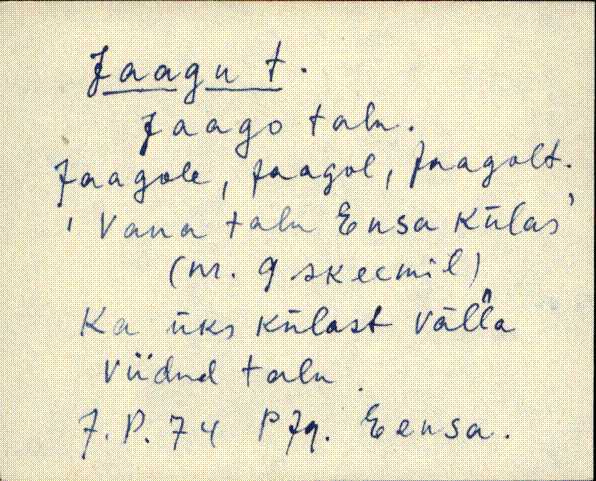 Jaagu t.
Jaago talu.
Jaagole, Jaagol, Jaagolt.
'Vana talu Eensa külas'
(nr. 9 skeemil)
Ka üks külast välla
viidud talu
J.P. 74 PJg. Eensa.